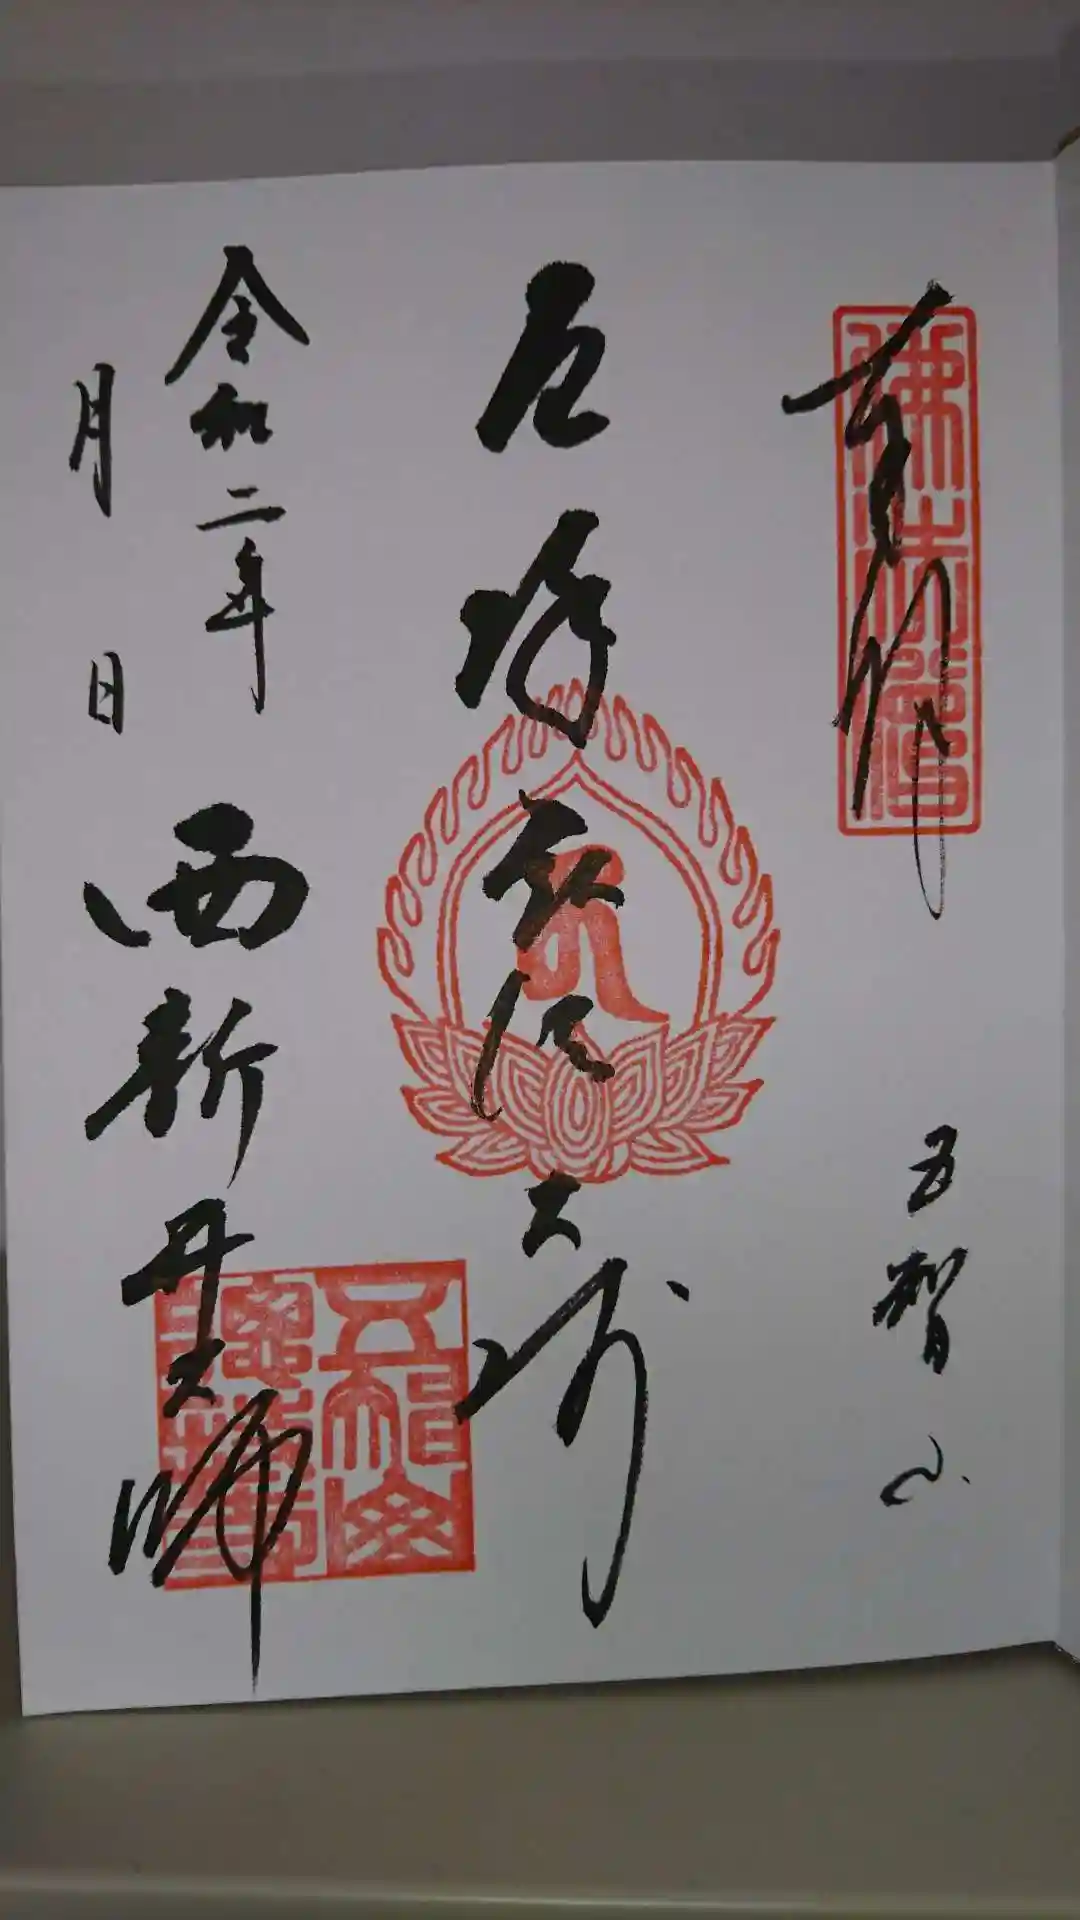 奉拝
佛法僧
五智山
厄除弘法大師
令和二年
月 日
西新井大師
五智山
總持寺